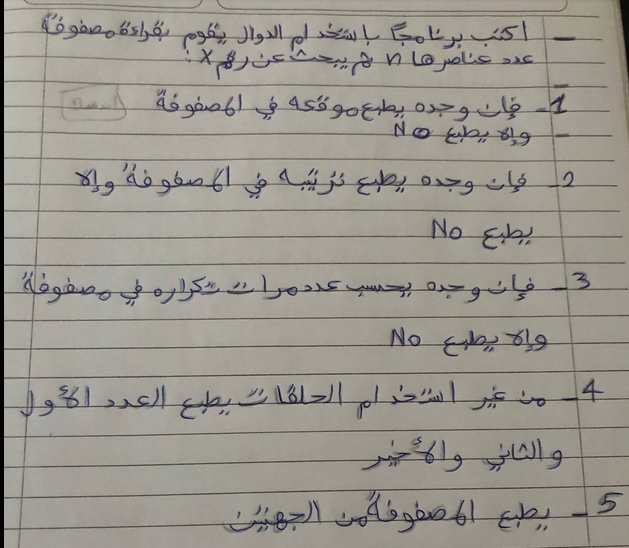 – اكتب برنامجاً باستخدام الدوال يقوم بقراءة مصفوفة
عدد عناصرها n ثم يبحث عن رقم x :
1- فإن وجده يطبع موقعه في المصفوفة
– وإلا يطبع No
2- فإن وجده يطبع ترتيبه في المصفوفة وإلا
يطبع No
3- فإن وجده يحسب عدد مرات تكراره في مصفوفة
وإلا يطبع No
4- من غير استخدام الحلقات يطبع العدد الأول
والثاني والأخير
5- يطبع المصفوفة من الجهتين